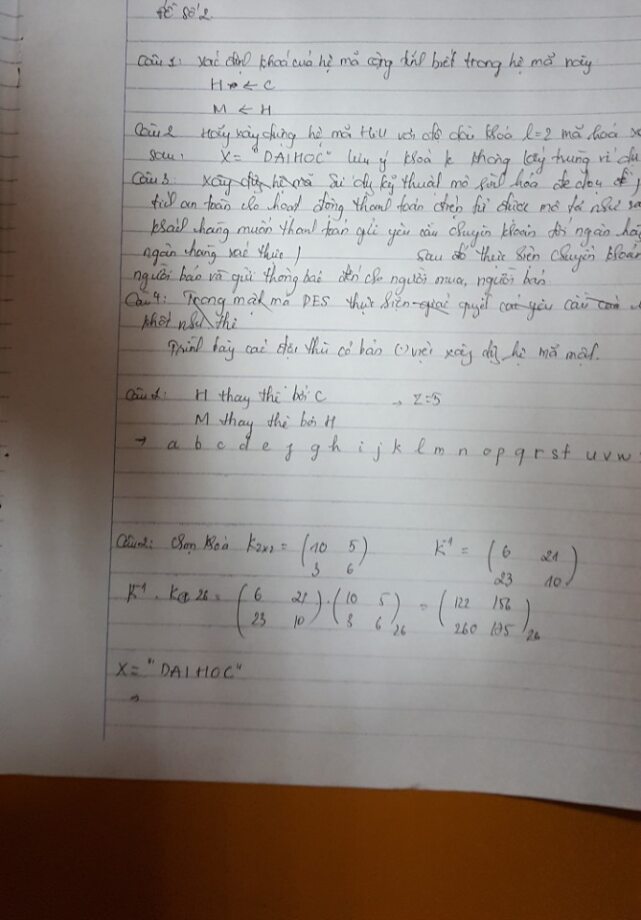 Đề số 2.
Câu 1: Xác định khoá của hệ mã cộng tính biết trong hệ mã này
H ← C
M ← H
Câu 2 Hãy xây dựng hệ mã Hill với độ dài khoá l=2 mã hoá
sau: X= "DAIHOC" lưu ý khoá k không lấy trùng ví dụ
Câu 3 xây dựng hệ mã Sử dụng kỹ thuật mã hoá để
an toàn cho hoạt động thanh toán điện tử được mô tả như
khách hàng muốn thanh toán gửi yêu cầu chuyển khoản tới ngân
ngân hàng xác thực sau đó thực hiện chuyển khoản
người bán và gửi thông báo đến cho người mua, người bán.
Câu 4: Trong mật mã DES thực hiện giải quyết các yêu cầu
như thế
Trình bày các cơ bản việc xây dựng hệ mã mật.
Câu 1: H thay thế bởi C → Z=5
M thay thế bởi H
→ a b c d e f g h i j k l m n o p q r s t u v w
Câu 2: Chọn khoá K2x2 = (10 5 K-1 = (6 21
3 6) 23 10)
K-1 . K 26 = (6 21 . (10 5 = (122 156
23 10) 3 6)26 260 175)26
X= "DAIHOC"
⇒